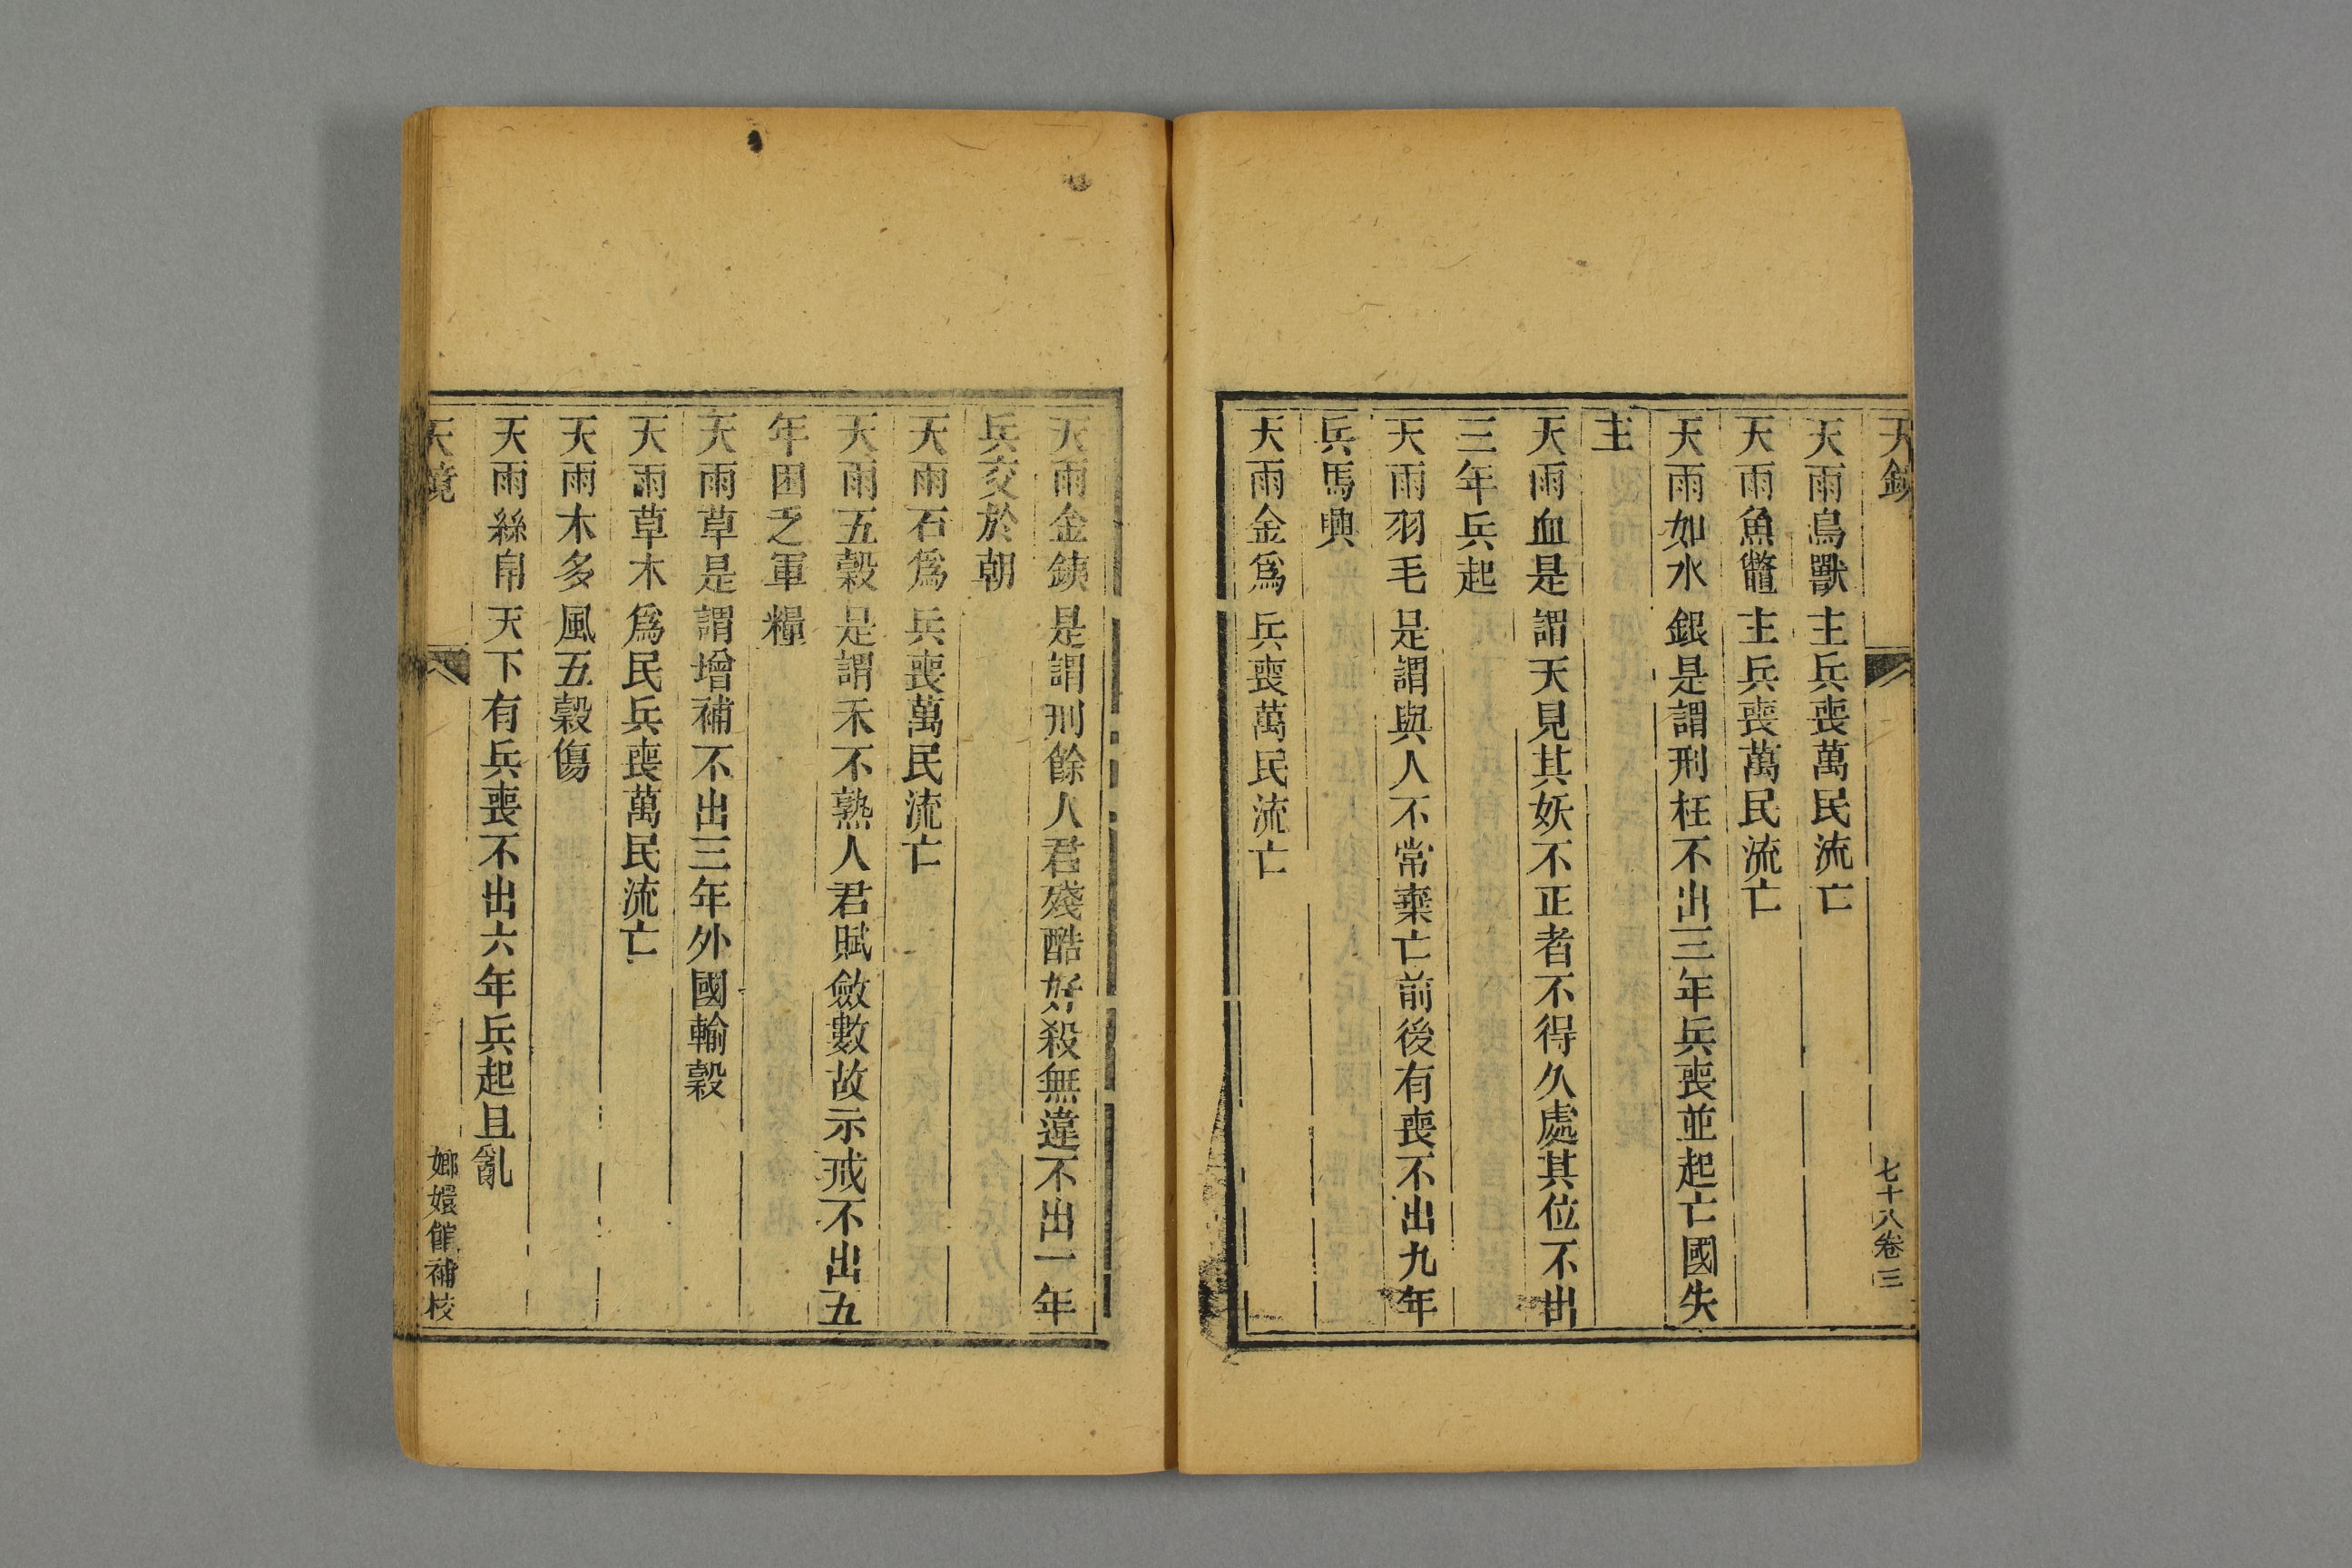 天鏡
七十八卷 三
天雨鳥獸主兵喪萬民流亡
天雨魚鼈主兵喪萬民流亡
天雨如水銀是謂刑枉不出三年兵喪並起亡國失
主
天雨血是謂天見其妖不正者不得久處其位不出
三年兵起
天雨羽毛是謂與人不常棄亡前後有喪不出九年
兵馬興
天雨金爲兵喪萬民流亡
天雨金銕是謂刑餘人君殘酷好殺無違不出一年
兵交於朝
天雨石爲兵喪萬民流亡
天雨五穀是謂禾不熟人君賦斂數故示戒不出五
年困乏軍糧
天雨草是謂增補不出三年外國輸穀
天雨草木爲民兵喪萬民流亡
天雨木多風五穀傷
天雨絲帛天下有兵喪不出六年兵起且亂
天鏡
嫏嬛館補校